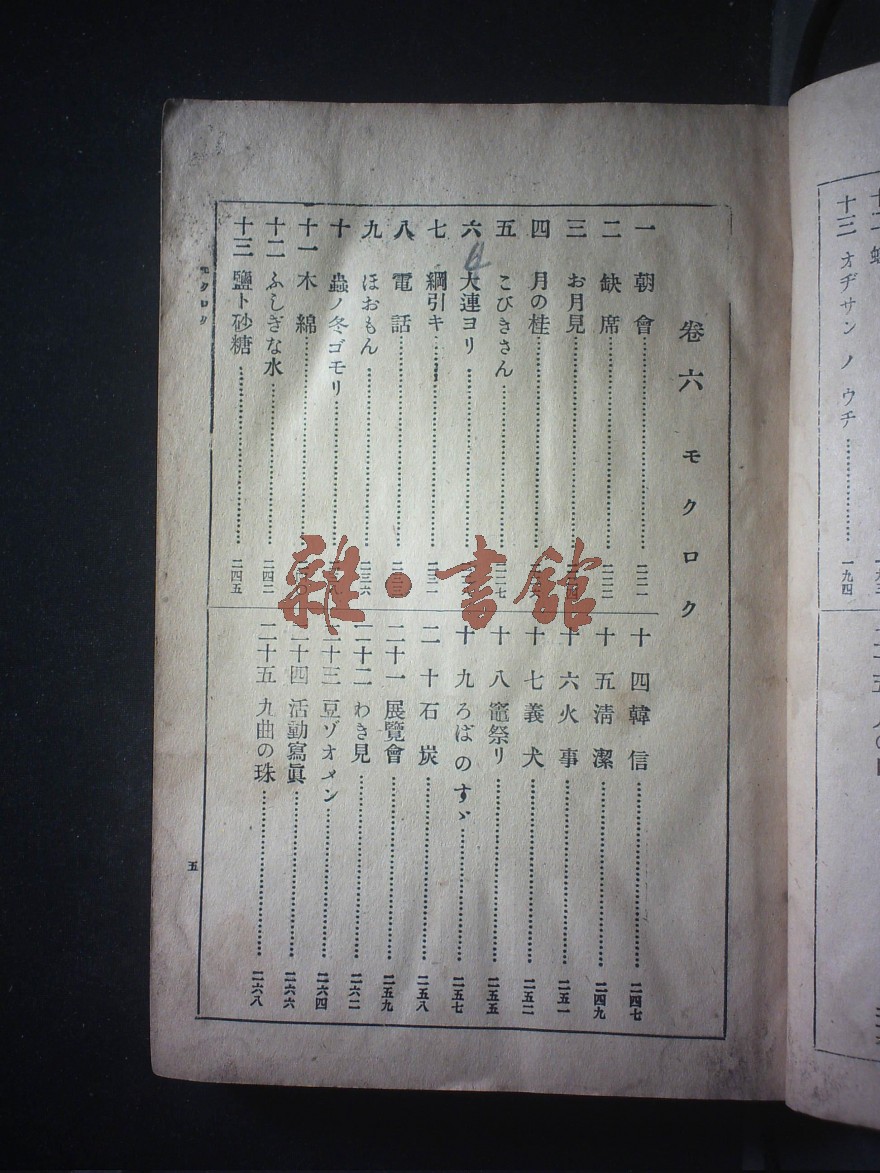 卷六 モクロク
一 朝會 二二一
二 缺席 二二二
三 お月見
四 月の桂
五 こびきさん 二二七
六 大連ヨリ
七 綱引キ 二三一
八 電話 二三三
九 ほおもん 二三六
十 蟲ノ冬ゴモリ
十一 木綿
十二 ふしぎな水 二四二
十三 鹽ト砂糖 二四五
十四 韓信 二四七
十五 淸潔 二四九
十六 火事 二五一
十七 義犬 二五二
十八 竈祭リ 二五五
十九 ろばのすゞ 二五七
二十 石炭 二五八
二十一 展覽會 二五九
二十二 わき見 二六二
二十三 豆ゾオメン 二六四
二十四 活動寫眞 二六六
二十五 九曲の珠 二六八
モクロク
五
雜·書館
十三 オヂサン ノ ウチ 一九四